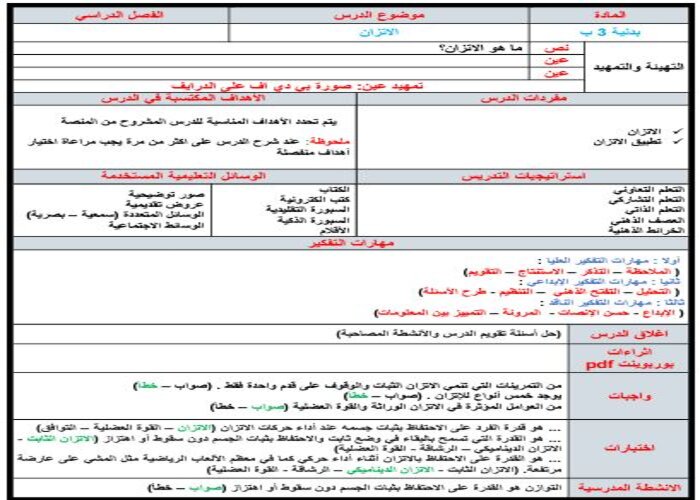 المادة موضوع الدرس الفصل الدراسي
بدنية 3 ب الاتزان
التهيئة والتمهيد
نص ما هو الاتزان؟
عين
عين
تمهيد عين: صورة بي دي اف على الدرايف
مفردات الدرس الأهداف المكتسبة في الدرس
✓ الاتزان
✓ تطبيق الاتزان
يتم تحدد الأهداف المناسبة للدرس المشروح من المنصة
ملحوظة: عند شرح الدرس على اكثر من مرة يجب مراعاة اختيار
أهداف منفصلة
استراتيجيات التدريس الوسائل التعليمية المستخدمة
التعلم التعاوني
التعلم التشاركي
التعلم الذاتي
العصف الذهني
الخرائط الذهنية
الكتاب
كتب الكترونية
السبورة التقليدية
السبورة الذكية
الأقلام
صور توضيحية
عروض تقديمية
الوسائل المتعددة (سمعية – بصرية)
الوسائط الاجتماعية
مهارات التفكير
أولا : مهارات التفكير العليا :
( الملاحظة – التذكر – الاستنتاج – التقويم)
ثانيا : مهارات التفكير الإبداعي :
( التحليل – التفتح الذهني – التنظيم - طرح الأسئلة)
ثالثا : مهارات التفكير الناقد :
( الإبداع - حسن الإنصات - المرونة – التمييز بين المعلومات)
اغلاق الدرس (حل أسئلة تقويم الدرس والأنشطة المصاحبة)
اثراءات
بوربوينت pdf
واجبات
من التمرينات التي تنمي الاتزان الثبات والوقوف على قدم واحدة فقط . (صواب – خطأ)
يوجد خمس أنواع للاتزان . (صواب – خطأ)
من العوامل المؤثرة في الاتزان الوراثة والقوة العضلية (صواب – خطأ)
اختبارات
... هو قدرة الفرد على الاحتفاظ بثبات جسمه عند أداء حركات الاتزان (الاتزان – القوة العضلية – التوافق)
... هو القدرة التي تسمح بالبقاء في وضع ثابت والاحتفاظ بثبات الجسم دون سقوط أو اهتزاز (الاتزان الثابت -
الاتزان الديناميكي – الرشاقة - القوة العضلية)
... هو القدرة على الاحتفاظ بالاتزان أثناء أداء حركي كما في معظم الألعاب الرياضية مثل المشي على عارضة
مرتفعة. (الاتزان الثابت - الاتزان الديناميكي – الرشاقة - القوة العضلية)
الانشطة المدرسية التوازن هو القدرة على الاحتفاظ بثبات الجسم دون سقوط أو اهتزاز (صواب – خطأ)